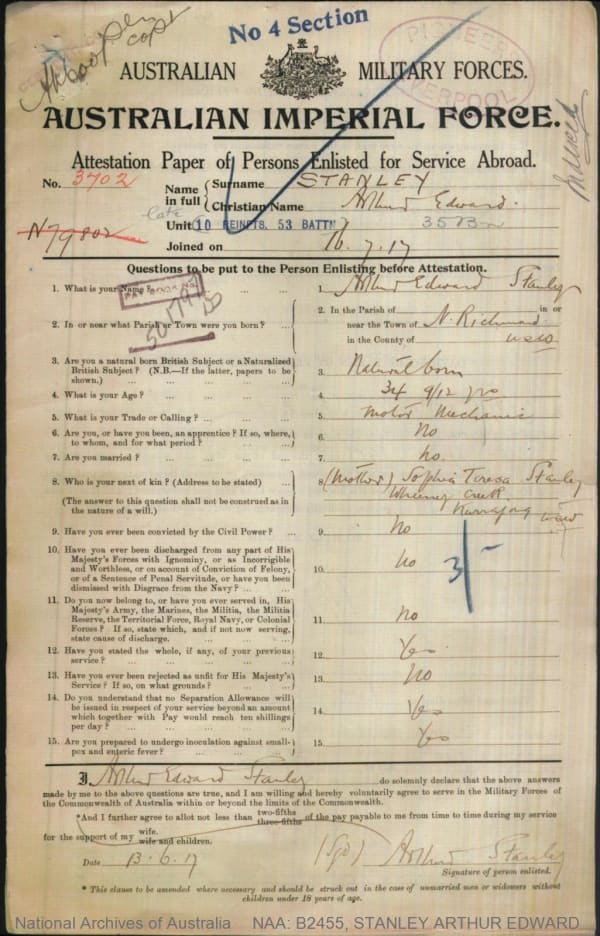 No 4 Section
copy
PIONEERS
LIVERPOOL
AUSTRALIAN MILITARY FORCES.
AUSTRALIAN IMPERIAL FORCE.
Attestation Paper of Persons Enlisted for Service Abroad.
No. 3702
Name in full
Surname STANLEY
Christian Name Arthur Edward.
N79802
late
Unit 10 REINFTS. 53 BATTN 35 Bn
Joined on 16.7.17
Questions to be put to the Person Enlisting before Attestation.
1. What is your Name? ... ... ... 1. Arthur Edward Stanley
PAY BOOK No.
2. In or near what Parish or Town were you born? ... 2. In the Parish of in or
near the Town of N. Richmond
in the County of NSW
3. Are you a natural born British Subject or a Naturalized
British Subject? (N.B.—If the latter, papers to be
shown.) ... ... ... ... 3. Natural born
4. What is your Age? ... ... ... ... 4. 34 9/12 yrs
5. What is your Trade or Calling? ... ... ... 5. Motor Mechanic
6. Are you, or have you been, an apprentice? If so, where,
to whom, and for what period? ... ... 6. No
7. Are you married? ... ... ... ... 7. No.
8. Who is your next of kin? (Address to be stated) ... 8. (Mother) Sophia Teresa Stanley
Wheeney Creek.
(The answer to this question shall not be construed as in
the nature of a will.) Kurrajong
9. Have you ever been convicted by the Civil Power? ... 9. No
10. Have you ever been discharged from any part of His
Majesty's Forces with Ignominy, or as Incorrigible
and Worthless, or on account of Conviction of Felony,
or of a Sentence of Penal Servitude, or have you been
dismissed with Disgrace from the Navy? ... ... 10. No
3/-
11. Do you now belong to, or have you ever served in, His
Majesty's Army, the Marines, the Militia, the Militia
Reserve, the Territorial Force, Royal Navy, or Colonial
Forces? If so, state which, and if not now serving,
state cause of discharge. ... ... ... 11. No
12. Have you stated the whole, if any, of your previous
service? ... ... ... ... ... 12. Yes
13. Have you ever been rejected as unfit for His Majesty's
Service? If so, on what grounds? ... ... 13. No
14. Do you understand that no Separation Allowance will
be issued in respect of your service beyond an amount
which together with Pay would reach ten shillings
per day? ... ... ... ... ... 14. Yes
15. Are you prepared to undergo inoculation against small-
pox and enteric fever? ... ... ... 15. Yes
I, Arthur Edward Stanley do solemnly declare that the above answers
made by me to the above questions are true, and I am willing and hereby voluntarily agree to serve in the Military Forces of
the Commonwealth of Australia within or beyond the limits of the Commonwealth.
*And I further agree to allot not less than two-fifths three-fifths of the pay payable to me from time to time during my service
for the support of my wife. wife and children.
Date 13.6.17 (Sgd) Arthur Stanley
Signature of person enlisted.
* This clause to be amended where necessary and should be struck out in the case of unmarried men or widowers without
children under 18 years of age.
National Archives of Australia NAA: B2455, STANLEY ARTHUR EDWARD